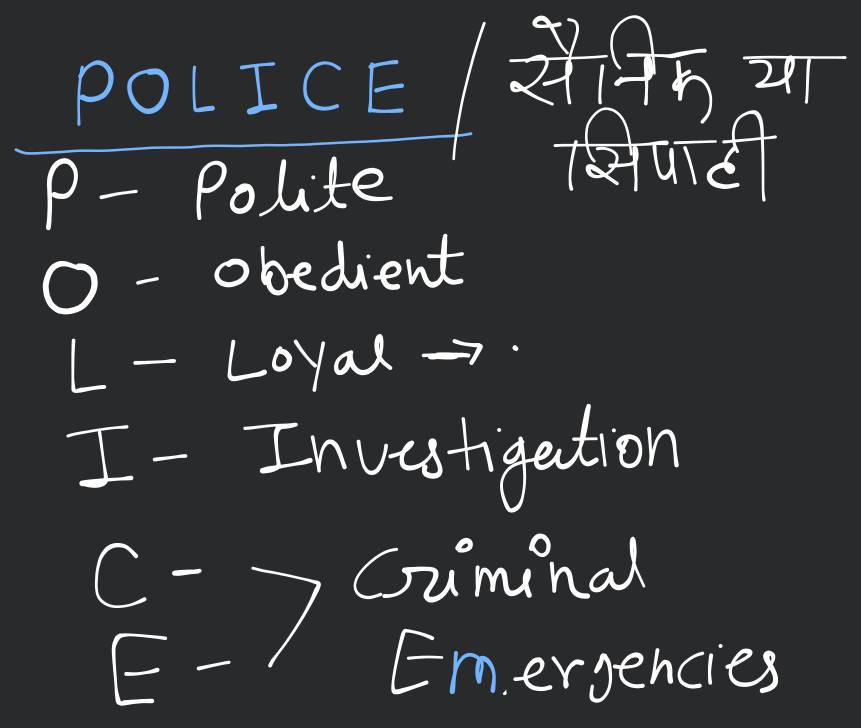 POLICE / सैनिक या
सिपाही
P - Polite
O - Obedient
L - Loyal → .
I - Investigation
C - Criminal
E - Emergencies